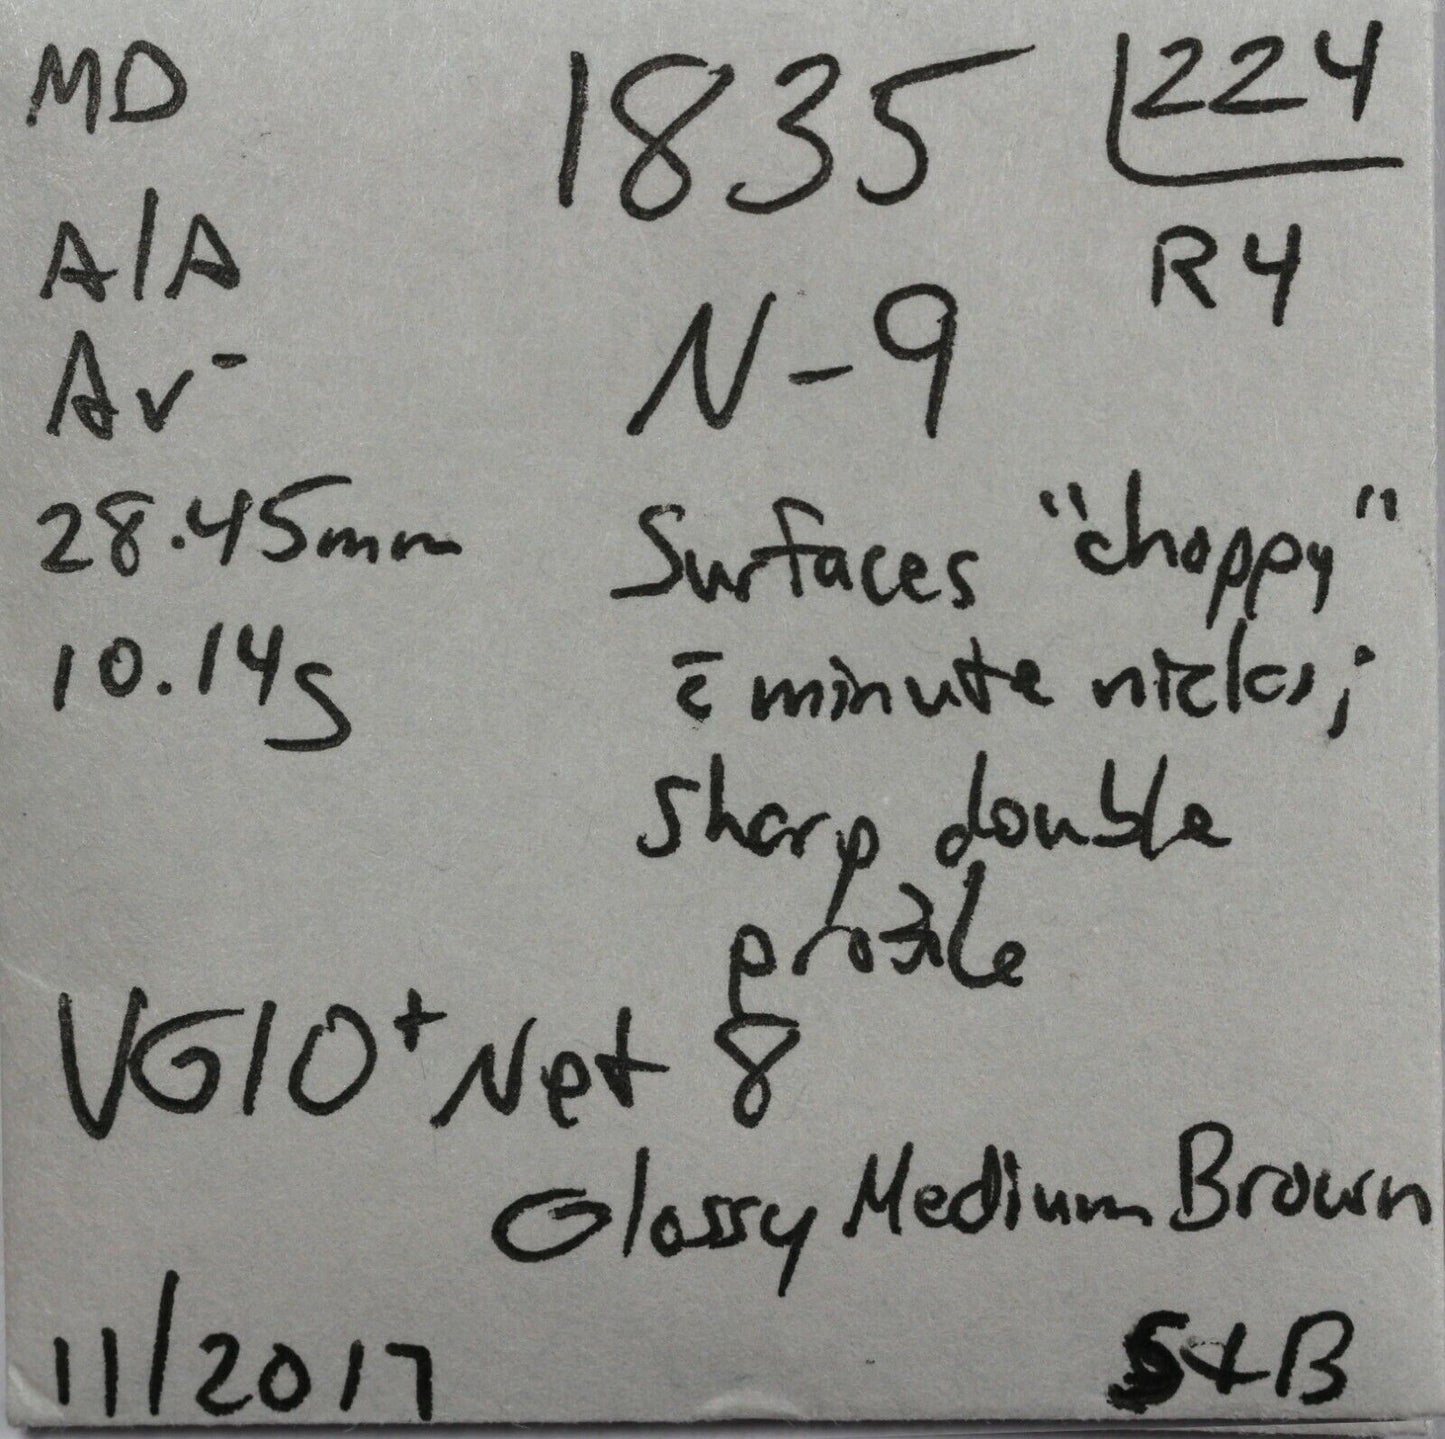 MD
A/A
Av-
28.45mm
10.14g
1835
N-9
224
R4
Surfaces "choppy"
c̄ minute nicks;
sharp double
profile
VG10+ Net 8
Glossy Medium Brown
11/2017
S+B